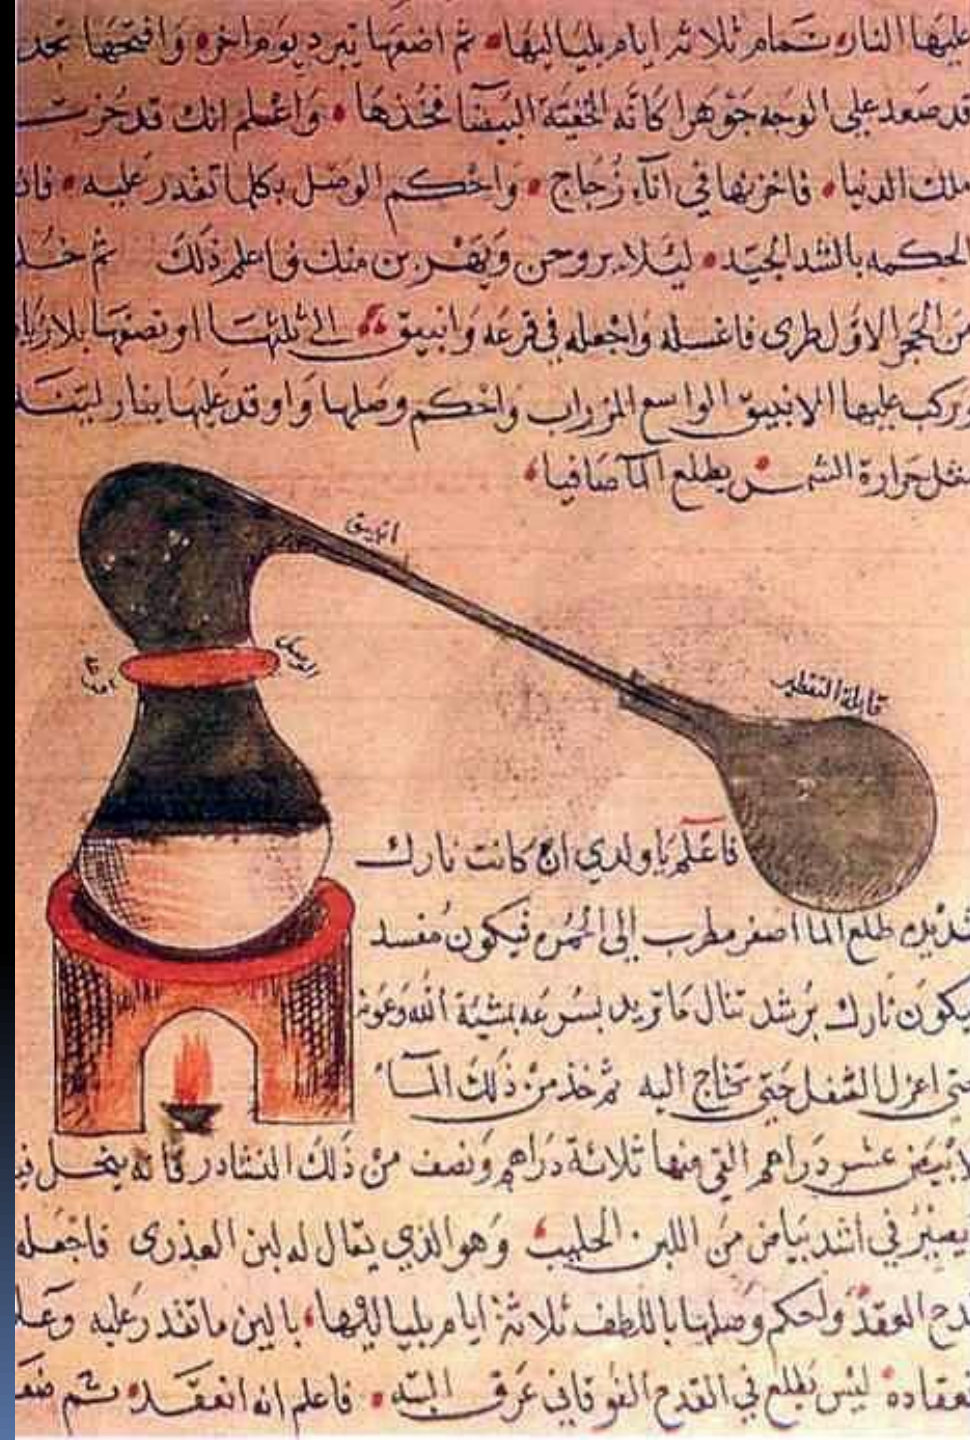 عليها النار تمام ثلاثة ايام بلياليها ثم اضعها تبرد يوم اخر وافتحها تجد
قد صعد على الوجه جوهرا كانه الفضة البيضا فخذها واعلم انك قد حزت
ملك الدنيا فاخزنها في اناء زجاج واحكم الوصل بكلما تقدر عليه فان
الحكمه بالشد الجيد ليلا يروحن ويهربن منك فاعلم ذلك ثم خذ
من الحجر الاول طرى فاغسله واجعله في قرعه وانبيق الى ثلثها او نصفها بلا
وركب عليها الانبيق الواسع المزراب واحكم وصلها واوقد عليها بنار لينـ
مثل حرارة الشمس يطلع الما صافيا
انبيق
الوصل
قابلة التقطير
فاعلم يا ولدي ان كانت نارك
شديده طلع الما اصفر مطرب الى الحمره فيكون مفسد
يكون نارك برشد تنال ما تريد بسرعه بمشية الله وعونه
حتى اعزل الثفل حتى تحتاج اليه ثم خذ من ذلك الما
لابيض عشر دراهم القي فيها ثلاثة دراهم ونصف من ذلك النشادر فانه ينحل
يصير في اشد بياض من اللبن الحليب وهو الذي يقال له لبن العذرى فاجعله
قدح العقد ولحكم وصلها باللطف ثلاثة ايام بلياليها بالين ما تقدر عليه
نعقاده ليس يطلع في القدح الفوقاني عرق البته فاعلم انه انعقد ثم